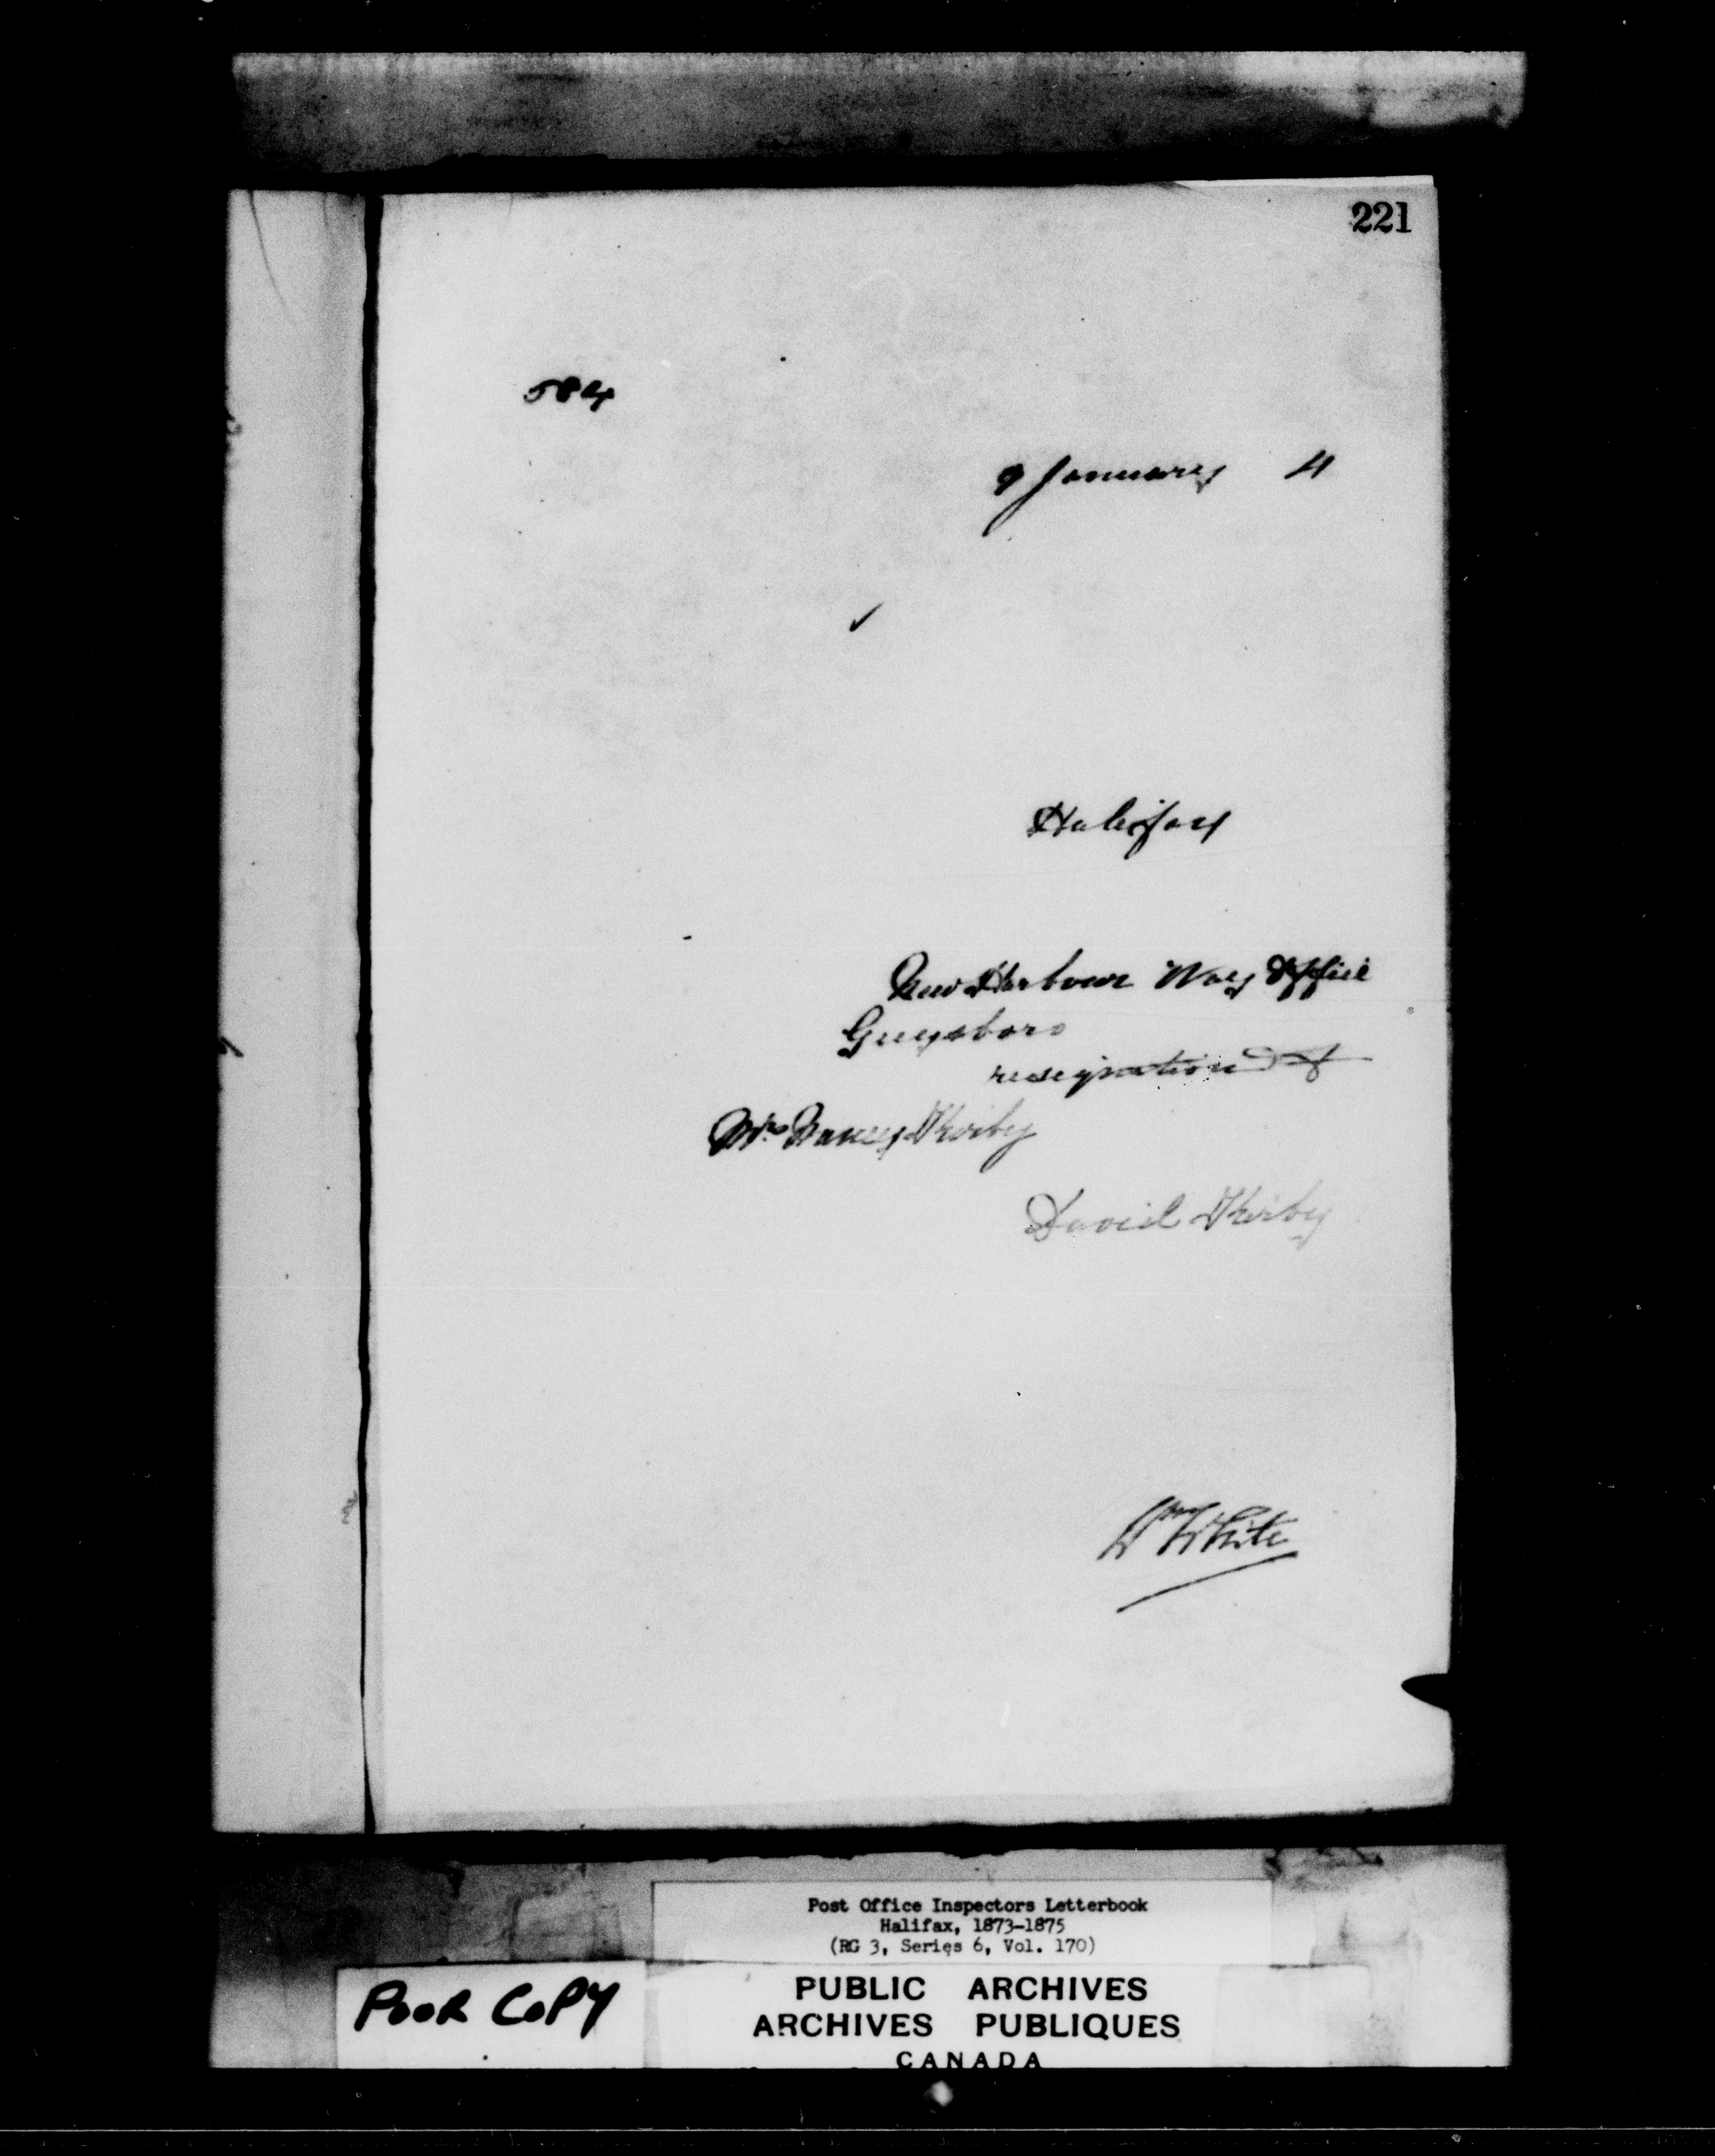 221
584
9 January 4
✓
Halifax
New Harbour Way Office
Guysboro
resignation of
Mrs Nancy Kirby
David Kirby
Wm White
Post Office Inspectors Letterbook
Halifax, 1873-1875
(RG 3, Series 6, Vol. 170)
POOR COPY
PUBLIC ARCHIVES
ARCHIVES PUBLIQUES
CANADA